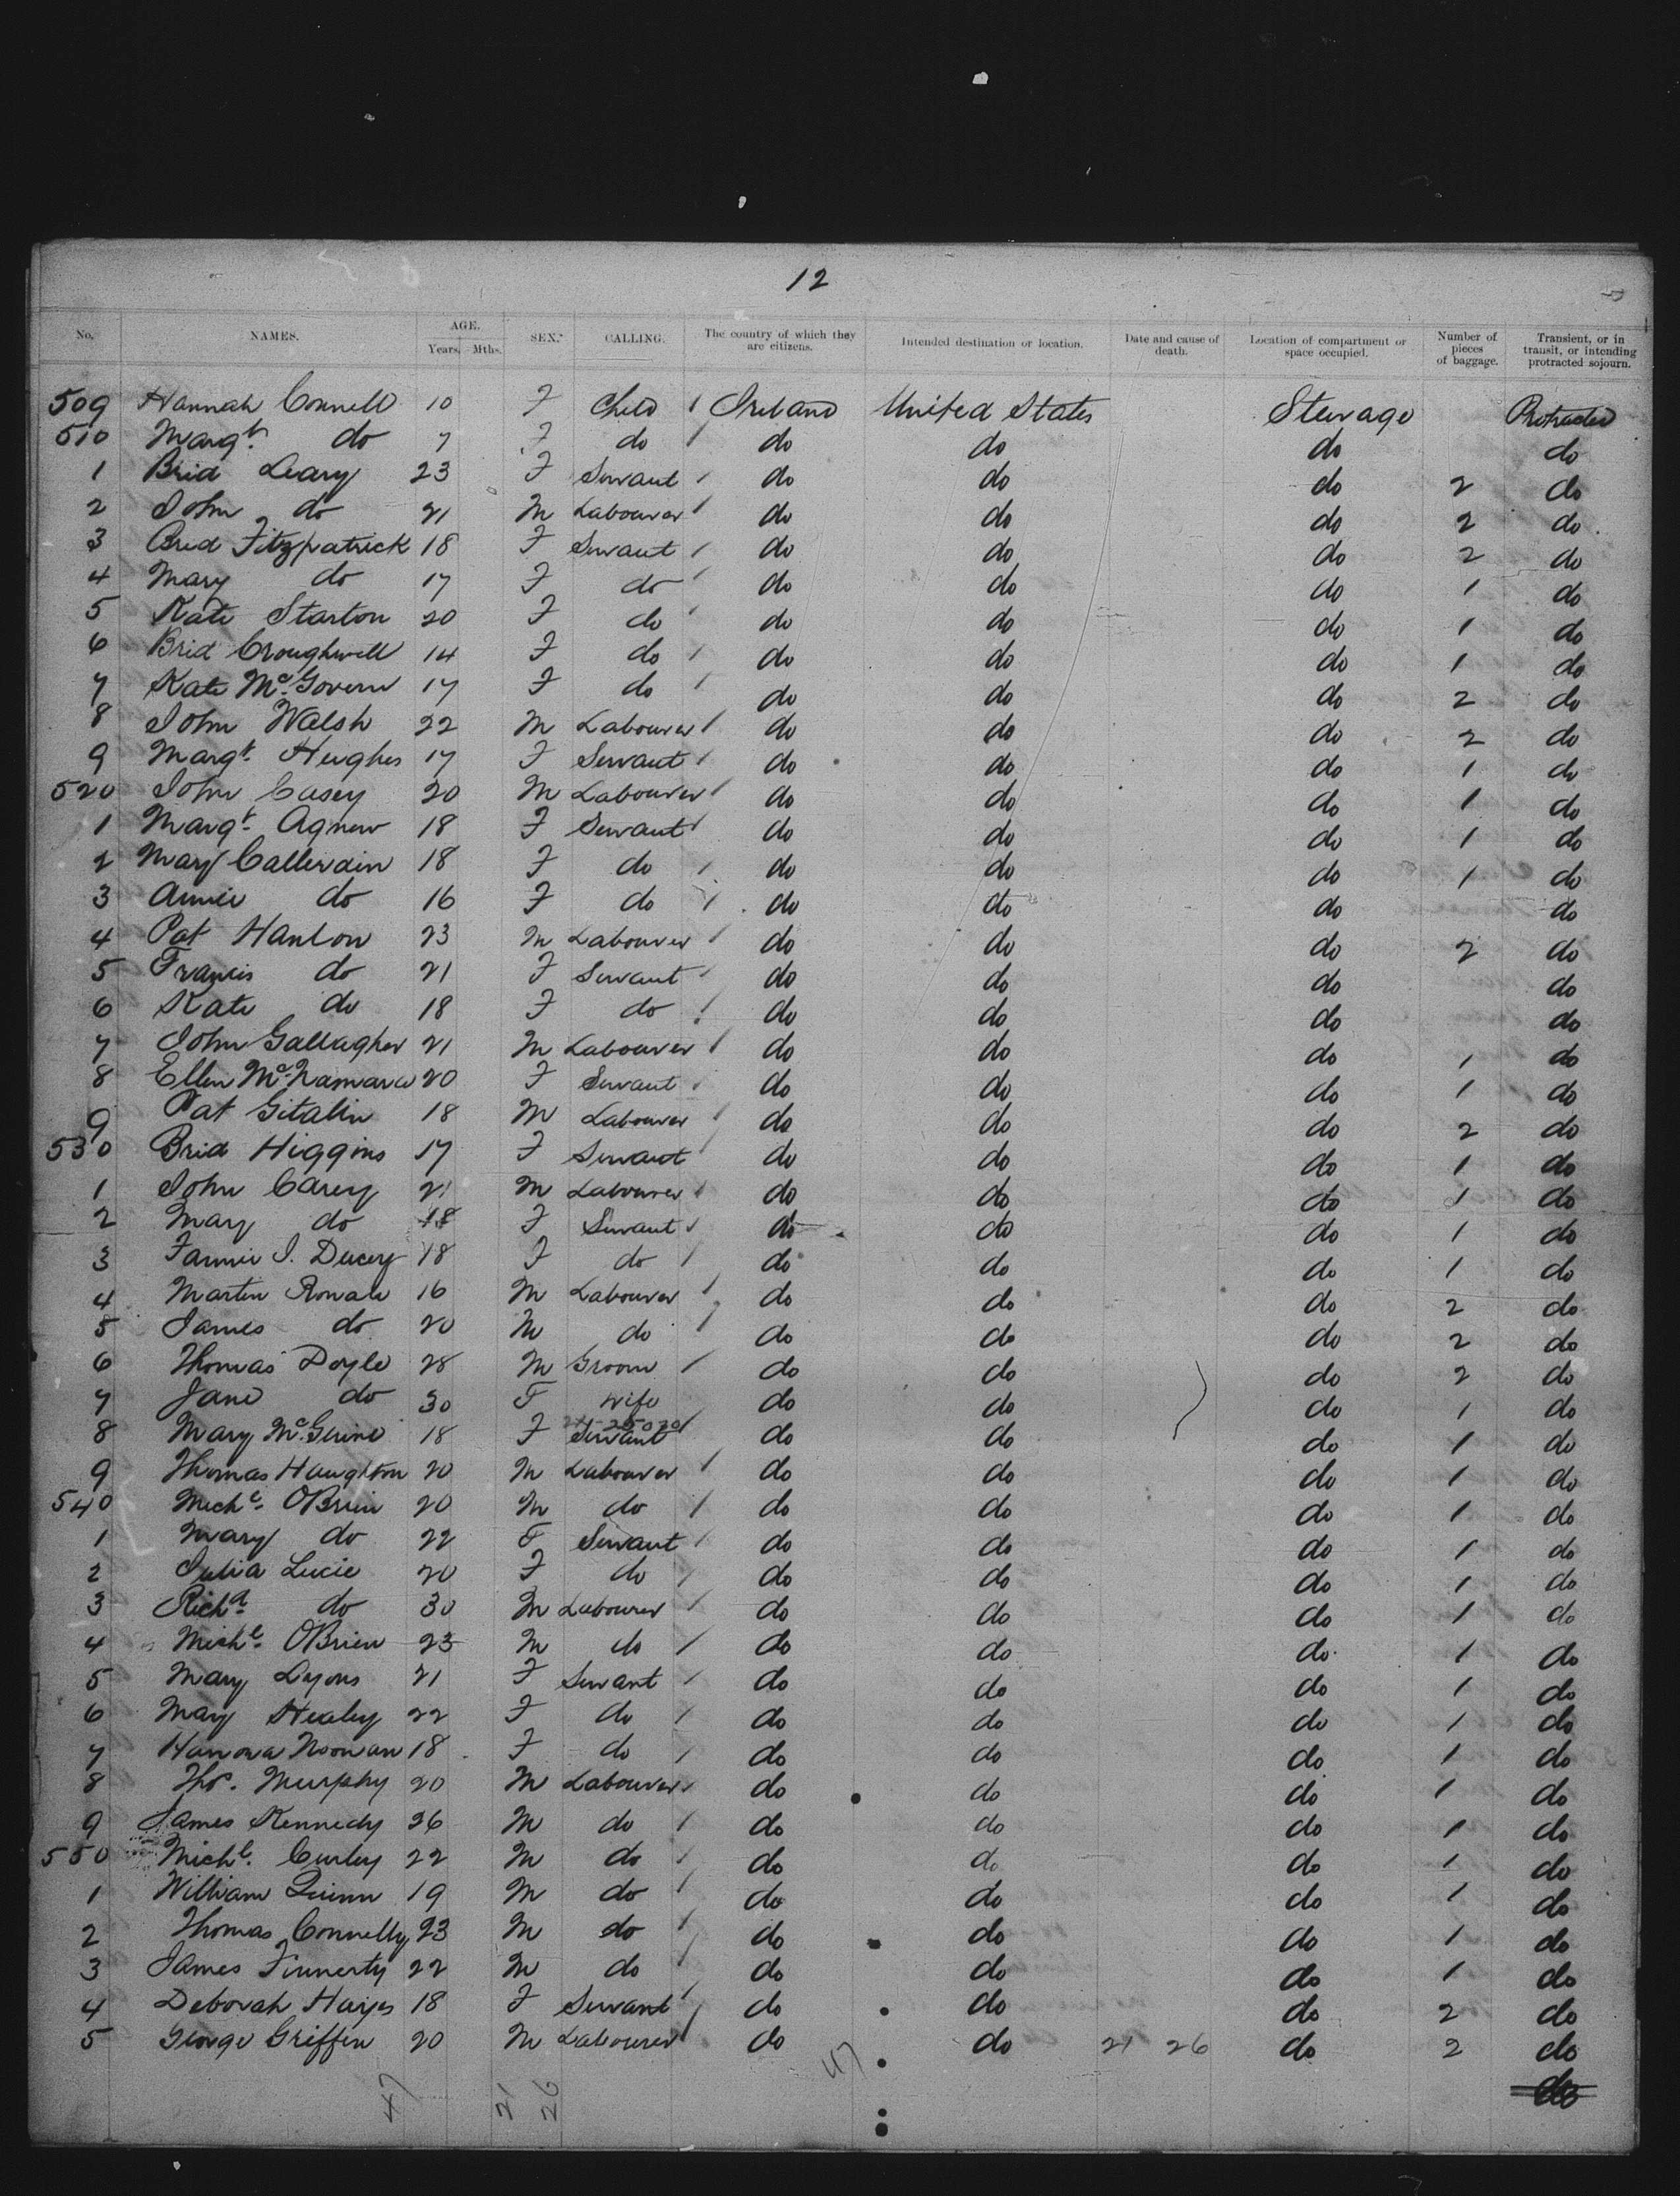 12
No. NAMES. AGE. Years. Mths. SEX. CALLING. The country of which they are citizens. Intended destination or location. Date and cause of death. Location of compartment or space occupied. Number of pieces of baggage. Transient, or in transit, or intending protracted sojourn.
509 Hannah Connell 10 F Child 1 Ireland United States Steerage Protracted
510 Margt. do 7 F do 1 do do do do
1 Brid Leary 23 F Servant / do do do 2 do
2 John do 21 M Labourer 1 do do do 2 do
3 Brid Fitzpatrick 18 F Servant / do do do 2 do
4 Mary do 17 F do / do do do 1 do
5 Kate Starton 20 F do / do do do 1 do
6 Brid Croughwell 14 F do / do do do 1 do
7 Kate McGovern 17 F do / do do do 2 do
8 John Walsh 22 M Labourer 1 do do do 2 do
9 Margt. Hughes 17 F Servant / do do do 1 do
520 John Casey 20 M Labourer / do do do 1 do
1 Margt. Agnew 18 F Servant / do do do 1 do
2 Mary Callerdin 18 F do / do do do 1 do
3 Annie do 16 F do / do do do do
4 Pat Hanlon 23 M Labourer / do do do 2 do
5 Francis do 21 F Servant / do do do do
6 Kate do 18 F do / do do do do
7 John Gallagher 21 M Labourer / do do do 1 do
8 Ellen McNamara 20 F Servant / do do do 1 do
9 Pat 18 M Labourer / do do do 2 do
530 Brid Higgins 17 F Servant / do do do 1 do
1 John Carey 21 M Labourer / do do do 1 do
2 Mary do 18 F Servant / do do do 1 do
3 Fannie J. Ducey 18 F do / do do do 1 do
4 Martin Ronale 16 M Labourer / do do do 2 do
5 James do 20 M do / do do do 2 do
6 Thomas Doyle 28 M Groom / do do do 2 do
7 Jane do 30 F Wife do do do 1 do
8 Mary 18 F Servant / do do do 1 do
9 Thomas Haughton 20 M Labourer / do do do 1 do
540 Michl. OBrien 20 M do / do do do 1 do
1 Mary do 22 F Servant / do do do 1 do
2 Julia Lucie 20 F do / do do do 1 do
3 Richd. do 30 M Labourer / do do do 1 do
4 Michl. OBrien 23 M do / do do do 1 do
5 Mary Lyons 21 F Servant / do do do 1 do
6 Mary Healey 22 F do / do do do 1 do
7 Hanora Noonan 18 F do / do do do 1 do
8 Thos. Murphy 20 M Labourer / do do do 1 do
9 James Kennedy 36 M do / do do do 1 do
550 Michl. Curley 22 M do / do do do 1 do
1 William Quinn 19 M do / do do do 1 do
2 Thomas Connelly 23 M do / do do do 1 do
3 James Finnerty 22 M do / do do do 1 do
4 Deborah Hayes 18 F Servant / do do do 2 do
5 George Griffin 20 M Labourer / do do 21 26 do 2 do
47 21 26 47 do